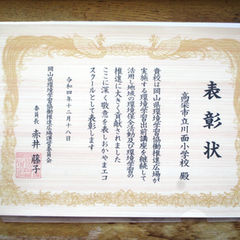 表彰状
高梁市立川面小学校 殿
貴校は岡山県環境学習協働推進広場が
実施する環境学習出前講座を継続して
活用し地域の環境保全活動及び環境学習の
推進に大きく貢献されました
ここに深く敬意を表しおかやまエコ
スクールとして表彰します
令和四年十二月十八日
岡山県環境学習協働推進広場運営委員会
委員長 赤井 藤子